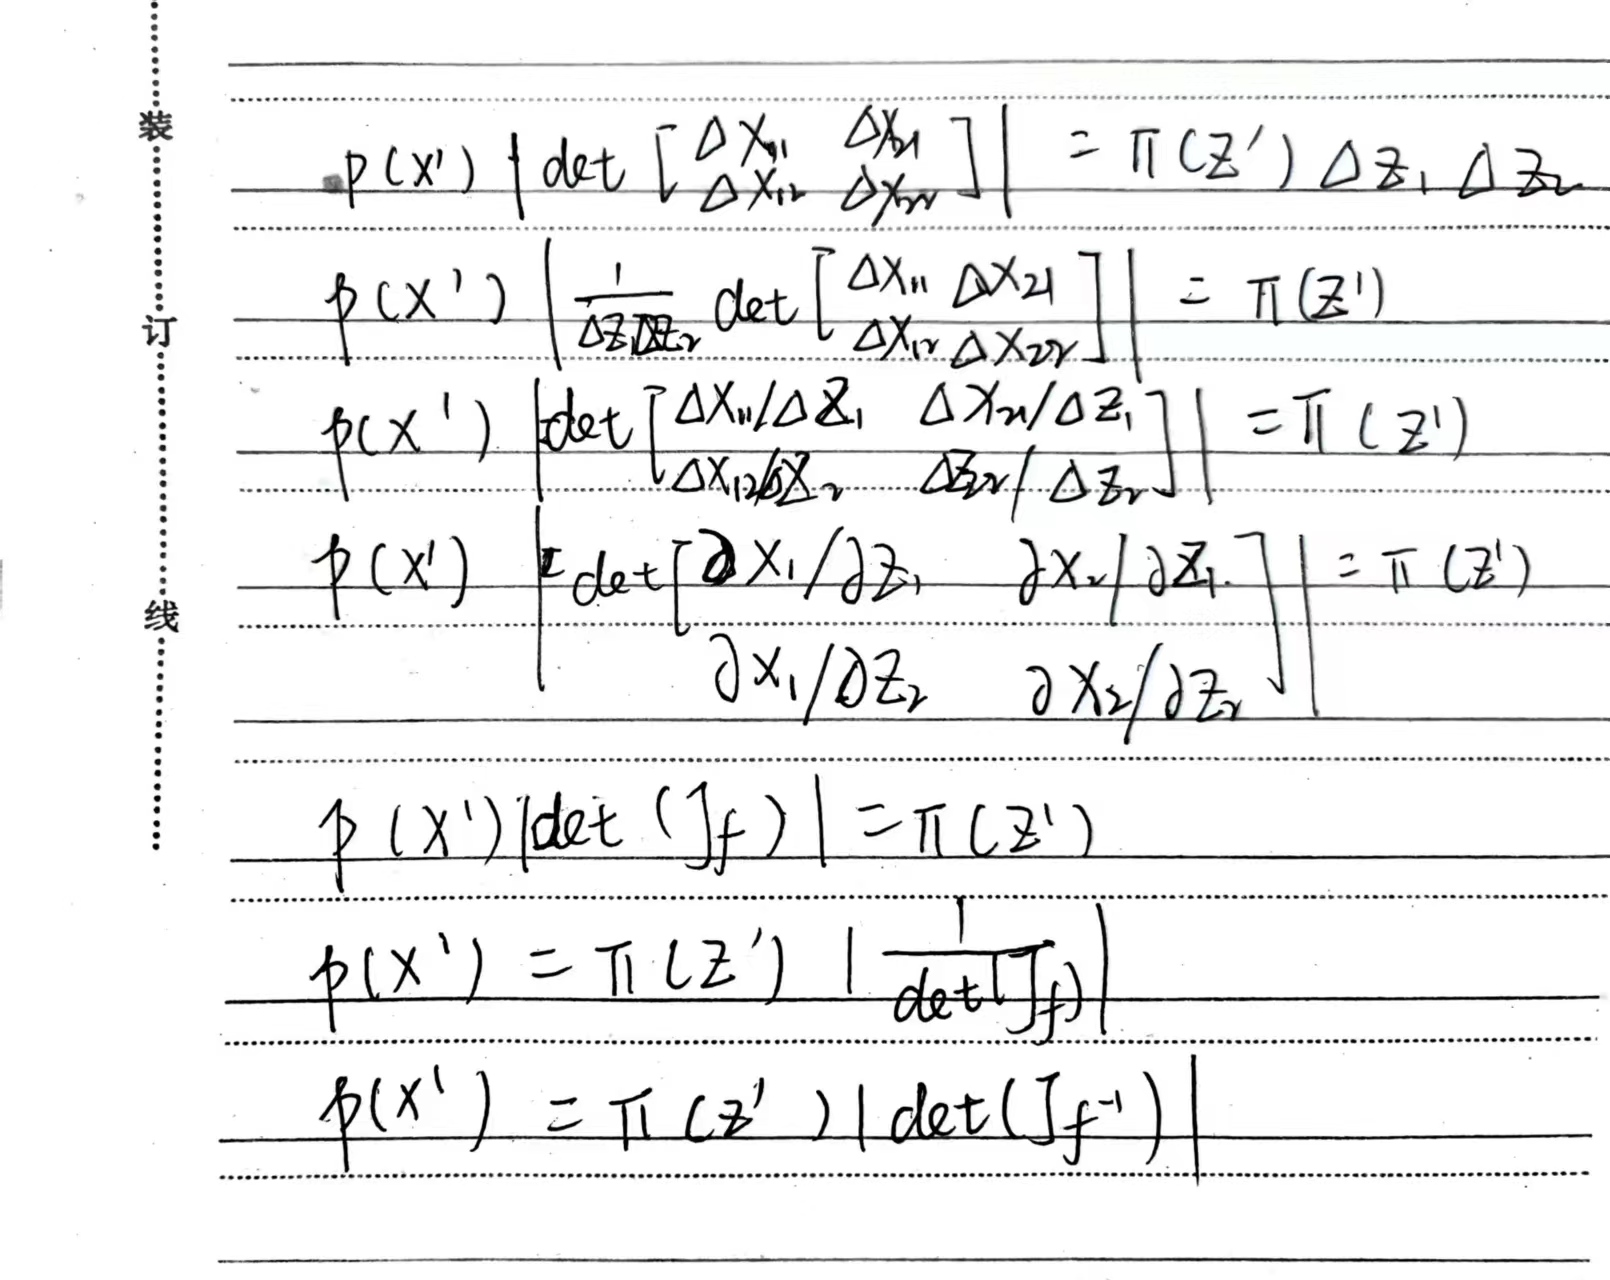 装
订
线
p(x') | det [ Δx₁₁ Δx₂₁ ; Δx₁₂ Δx₂₂ ] | = π(z') Δz₁ Δz₂
p(x') | 1/(Δz₁Δz₂) det [ Δx₁₁ Δx₂₁ ; Δx₁₂ Δx₂₂ ] | = π(z')
p(x') | det [ Δx₁₁/Δz₁ Δx₂₁/Δz₁ ; Δx₁₂/Δz₂ Δz₂₂/Δz₂ ] | = π(z')
p(x') | det [ ∂x₁/∂z₁ ∂x₂/∂z₁ ; ∂x₁/∂z₂ ∂x₂/∂z₂ ] | = π(z')
p(x') | det (Jf) | = π(z')
p(x') = π(z') | 1/det(Jf) |
p(x') = π(z') | det(Jf⁻¹) |